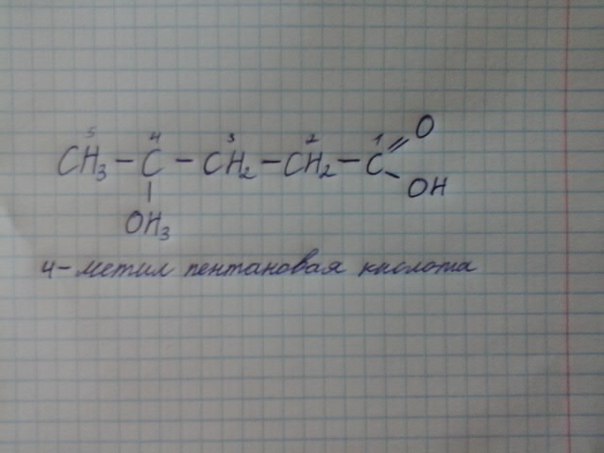 5 4 3 2 1 O
CH₃ – C – CH₂ – CH₂ – C
OH
OH₃
4-метил пентановая кислота